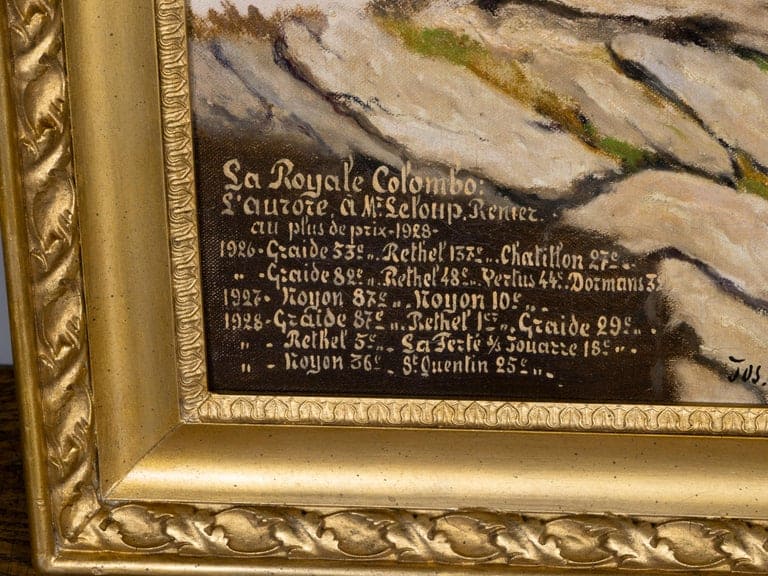 La Royale Colombo:
L'aurore, à Mr Leloup, Renier..
au plus de prix-1928-
1926-Graide 53e „. Rethel 137e „. Chatillon 27e „.
„ -Graide 82e „. Rethel 48e „. Vertus 44e „. Dormans 32
1927- Noyon 87e „. Noyon 10e „.
1928-Graide 87e „. Rethel 1er „. Graide 29e „.
„ - Rethel 5e „. La Ferté s/s Jouarre 18e „.
„ - Noyon 36e „. St Quentin 25e „.
Jos.